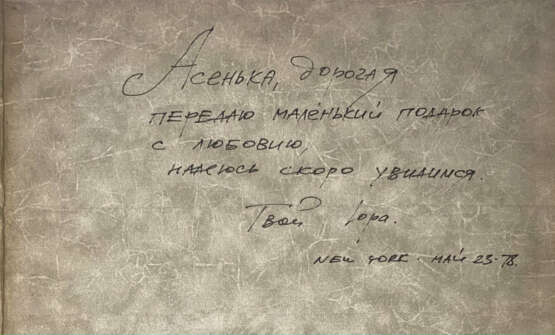 Асенька, дорогая
передаю маленький подарок
с любовию,
надеюсь скоро увидимся.
Твой Юра.
New York. Май 23-78.